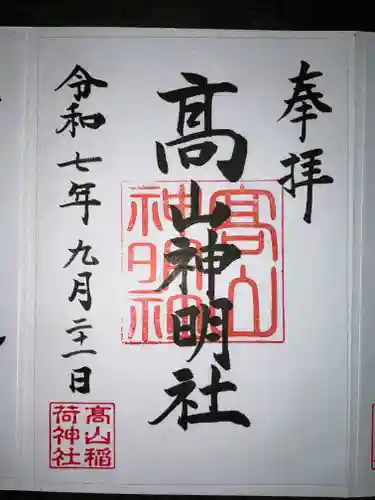 奉拝
髙山神明社
令和七年九月二十一日
髙山神明社
髙山稲荷神社